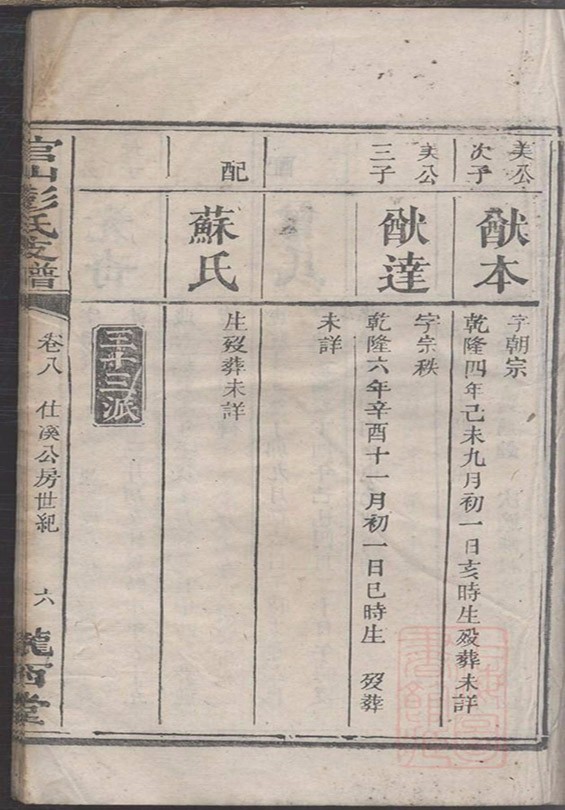 美公
次子
猷本
字朝宗
乾隆四年己未九月初一日亥時生殁葬未詳
美公
三子
猷達
字宗秩
乾隆六年辛酉十一月初一日巳時生 殁葬
未詳
配
蘇氏
生殁葬未詳
三十三派
官山彭氏支譜
卷八 仕溪公房世紀 六
隴西堂